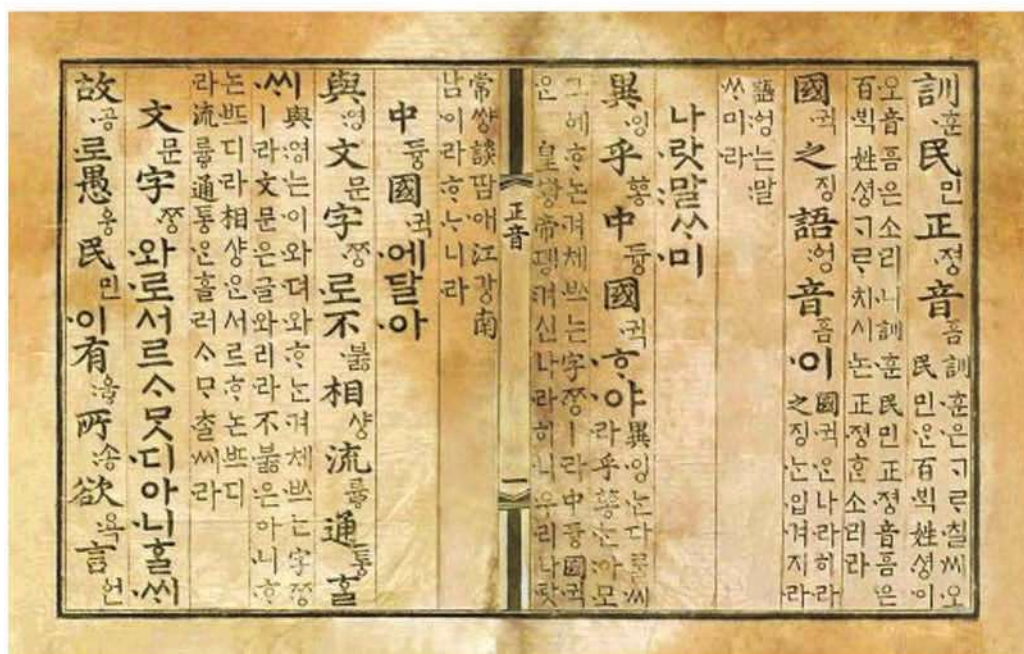 訓·훈民민正·져ᇰ音ᅙᅳᆷ
訓·훈·은ᄀᆞᄅᆞ·칠·씨·오
民민·ᄋᆞᆫ百·ᄇᆡᆨ姓·셔ᇰ·이
오音ᅙᅳᆷ·은소·리·니訓·훈民민正·져ᇰ音ᅙᅳᆷ·은
百·ᄇᆡᆨ姓·셔ᇰᄀᆞᄅᆞ·치시·논正·져ᇰᄒᆞᆫ소·리·라
國·귁之징語:ᅌᅥᆼ音ᅙᅳᆷ·이
國·귁·ᄋᆞᆫ나·라히·라
之징·ᄂᆞᆫ·입·겨지·라
語:ᅌᅥᆼ·는:말
ᄊᆞ·미·라
나·랏:말ᄊᆞ·미
異·잉乎ᅘᅩᆼ中듀ᇰ國·귁·ᄒᆞ·야
異·잉·ᄂᆞᆫ다ᄅᆞᆯ·씨
라乎ᅘᅩᆼ·ᄂᆞᆫ:아·모
그ᅌᅦ·ᄒᆞ논·겨체·ᄡᅳ는字·ᄍᆞᆼㅣ·라中듀ᇰ國·귁
ᄋᆞᆫ皇ᅘᅪᇰ帝·뎽:겨신나·라히·니·우·리나·랏
正音
一
常쌰ᇰ談땀·애江가ᇰ南
남·이·라·ᄒᆞᄂᆞ·니·라
中듀ᇰ國·귁·에달·아
與:영文문字·ᄍᆞᆼ·로不·부ᇙ相샤ᇰ流류ᇢ通토ᇰᄒᆞᆯ
ᄊᆡ
與:영·는·이·와·뎌·와·ᄒᆞ·ᄂᆞᆫ·겨체·ᄡᅳ는字·ᄍᆞᆼ
ㅣ·라文문·은·글·와리·라不·부ᇙ·은아·니·ᄒᆞ
논·ᄠᅳ디·라相샤ᇰ·ᄋᆞᆫ서르·ᄒᆞ논·ᄠᅳ디
라流류ᇢ通토ᇰ·ᄋᆞᆫ흘·러ᄉᆞᄆᆞ·ᄎᆞᆯ·씨·라
文문字·ᄍᆞᆼ·와·로서르ᄉᆞᄆᆞᆺ·디아·니ᄒᆞᆯ·ᄊᆡ
故·공·로愚ᅌᅮᆼ民민·이有:우ᇢ所:송欲·욕言언